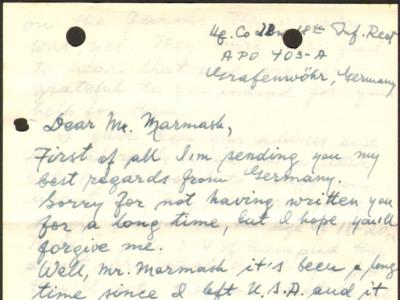 Hq. Co 18th Inf. Regt
APO 403-A
Grafenwöhr, Germany
Dear Mr. Marmash,
First of all I'm sending you my
best regards from Germany.
Sorry for not having written you
for a long time, but I hope you'll
forgive me.
Well, Mr. Marmash it's been a long
time since I left U.S.A and it